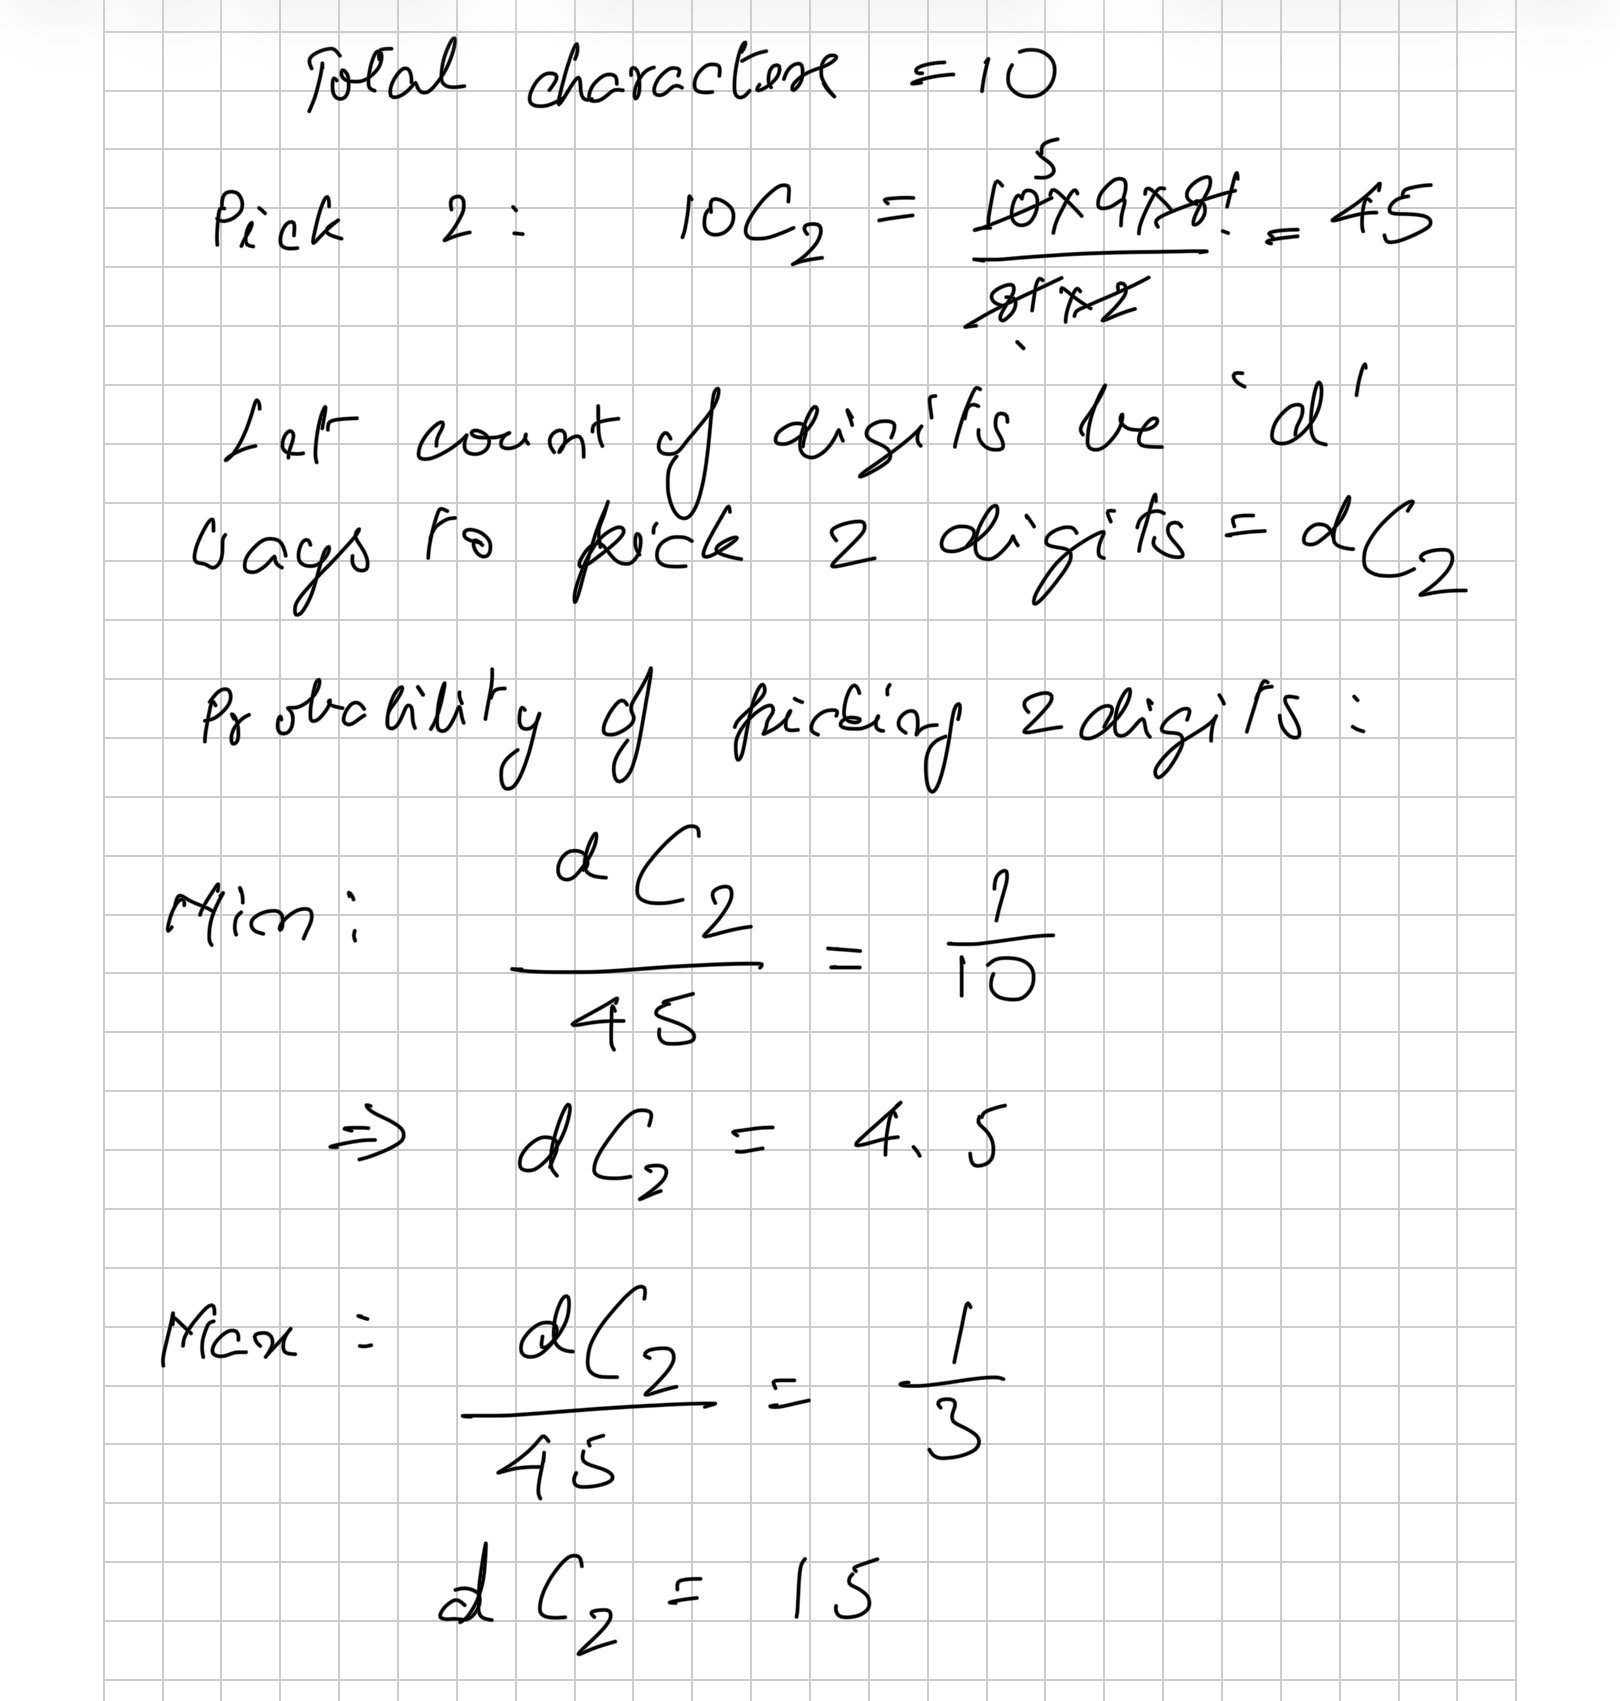 Total characters = 10
Pick 2 : 10C₂ = 10×9×8! / 8!×2 = 45
5
Let count of digits be 'd'
ways to pick 2 digits = dC₂
Probability of picking 2 digits :
Min : dC₂ / 45 = 1 / 10
⇒ dC₂ = 4.5
Max : dC₂ / 45 = 1 / 3
dC₂ = 15